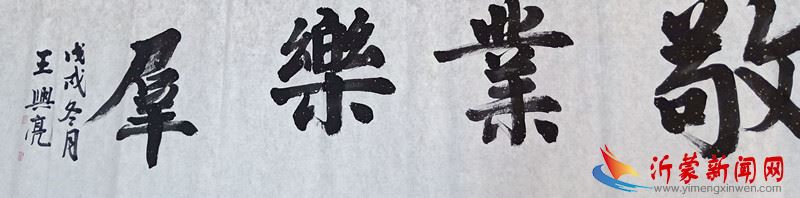 敬業樂羣
戊戌冬月
王興亮
沂蒙新闻网
www.yimengxinwen.com